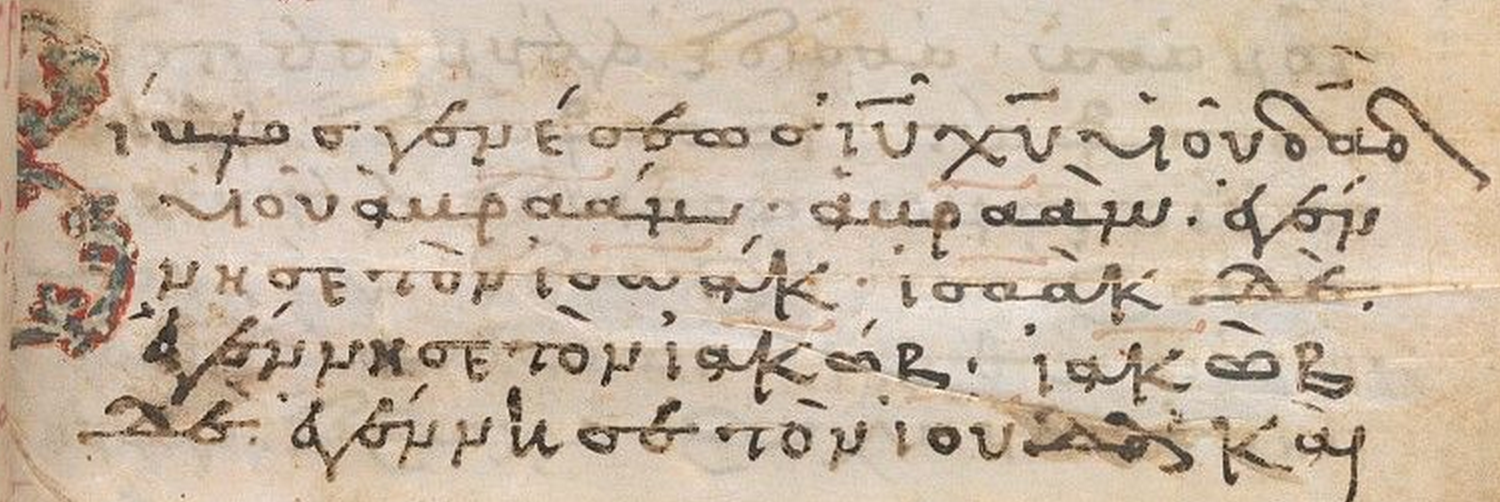 ίβλος γενέσεως ἰῦ χῦ υἱοῦ δαδ
υἱοῦ ἀβραάμ· ἀβραὰμ· ἐγέν
νησε τὸν ἰσαάκ· ἰσαὰκ δὲ·
ἐγέννησε τὸν ἰακώβ· ἰακὼβ
δὲ· ἐγέννησε τὸν ἰούδαν καὶ